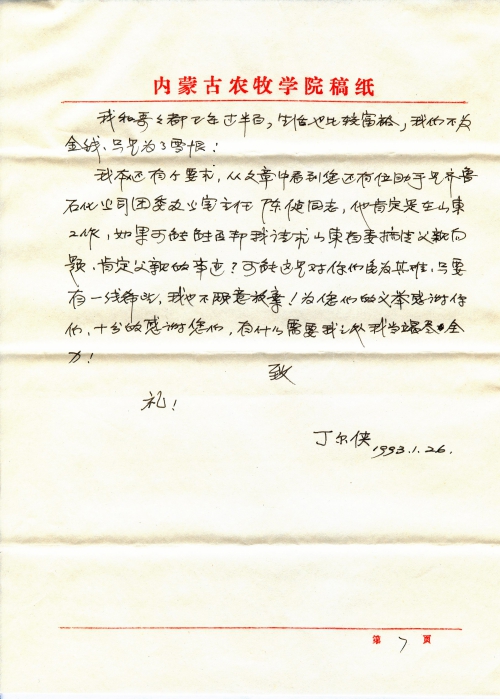 内蒙古农牧学院稿纸
我和哥々都已年过半百，生活也比较富裕，我们不为
金钱、只是为了雪恨：
我本还有个要求，从文章中看到您还有位助手是齐鲁
石化公司团委办公室主任 陈健同志，他肯定是在山東
工作，如果可能 能否帮我请求山東省委搞清父親问
题，肯定父親的事迹？可能这是对你们 为其难，只要
有一线希望，我也不愿意放棄！为您们的义举感谢你
们，十分的感谢您们，有什么需要我之处我当竭尽全
力！
致
礼！
丁尔侠
1993.1.26.
第 7 页